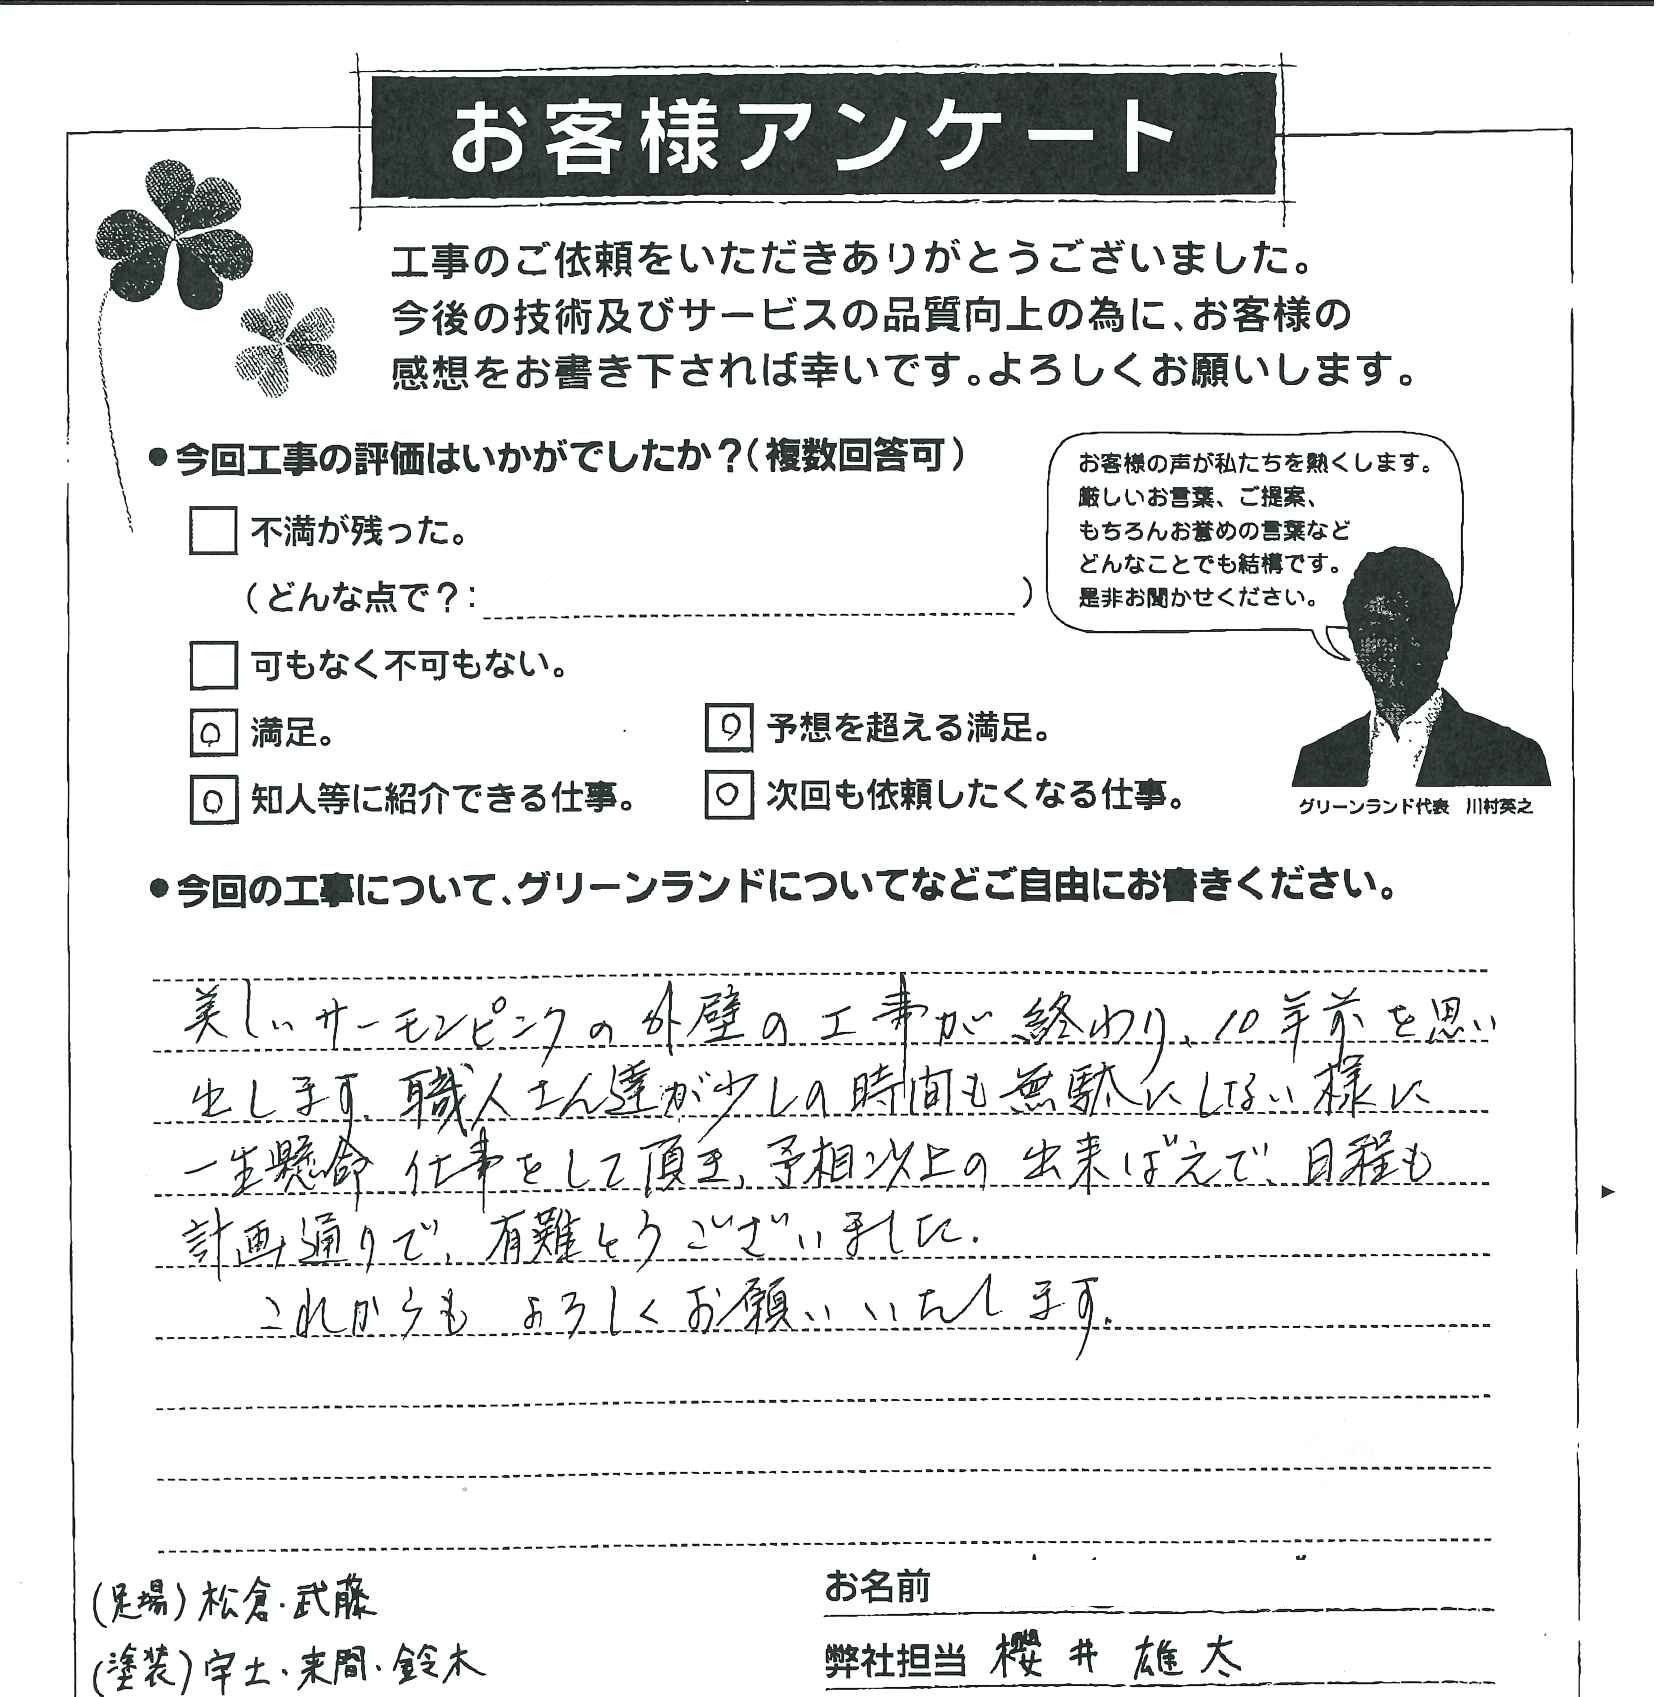 お客様アンケート
工事のご依頼をいただきありがとうございました。
今後の技術及びサービスの品質向上の為に、お客様の
感想をお書き下されば幸いです。よろしくお願いします。
●今回工事の評価はいかがでしたか？（複数回答可）
不満が残った。
（どんな点で？：　）
可もなく不可もない。
○ 満足。
○ 予想を超える満足。
○ 知人等に紹介できる仕事。
○ 次回も依頼したくなる仕事。
お客様の声が私たちを熱くします。
厳しいお言葉、ご提案、
もちろんお誉めの言葉など
どんなことでも結構です。
是非お聞かせください。
グリーンランド代表　川村英之
●今回の工事について、グリーンランドについてなどご自由にお書きください。
美しいサーモンピンクの外壁の工事が終わり、10年前を思い
出します。職人さん達が少しの時間も無駄にしない様に
一生懸命仕事をして頂き、予相以上の出来ばえで、日程も
計画通りで、有難とうございました。
これからもよろしくお願いいたします。
(足場)松倉・武藤
(塗装)宇土・来間・鈴木
お名前
弊社担当 櫻井 雄太